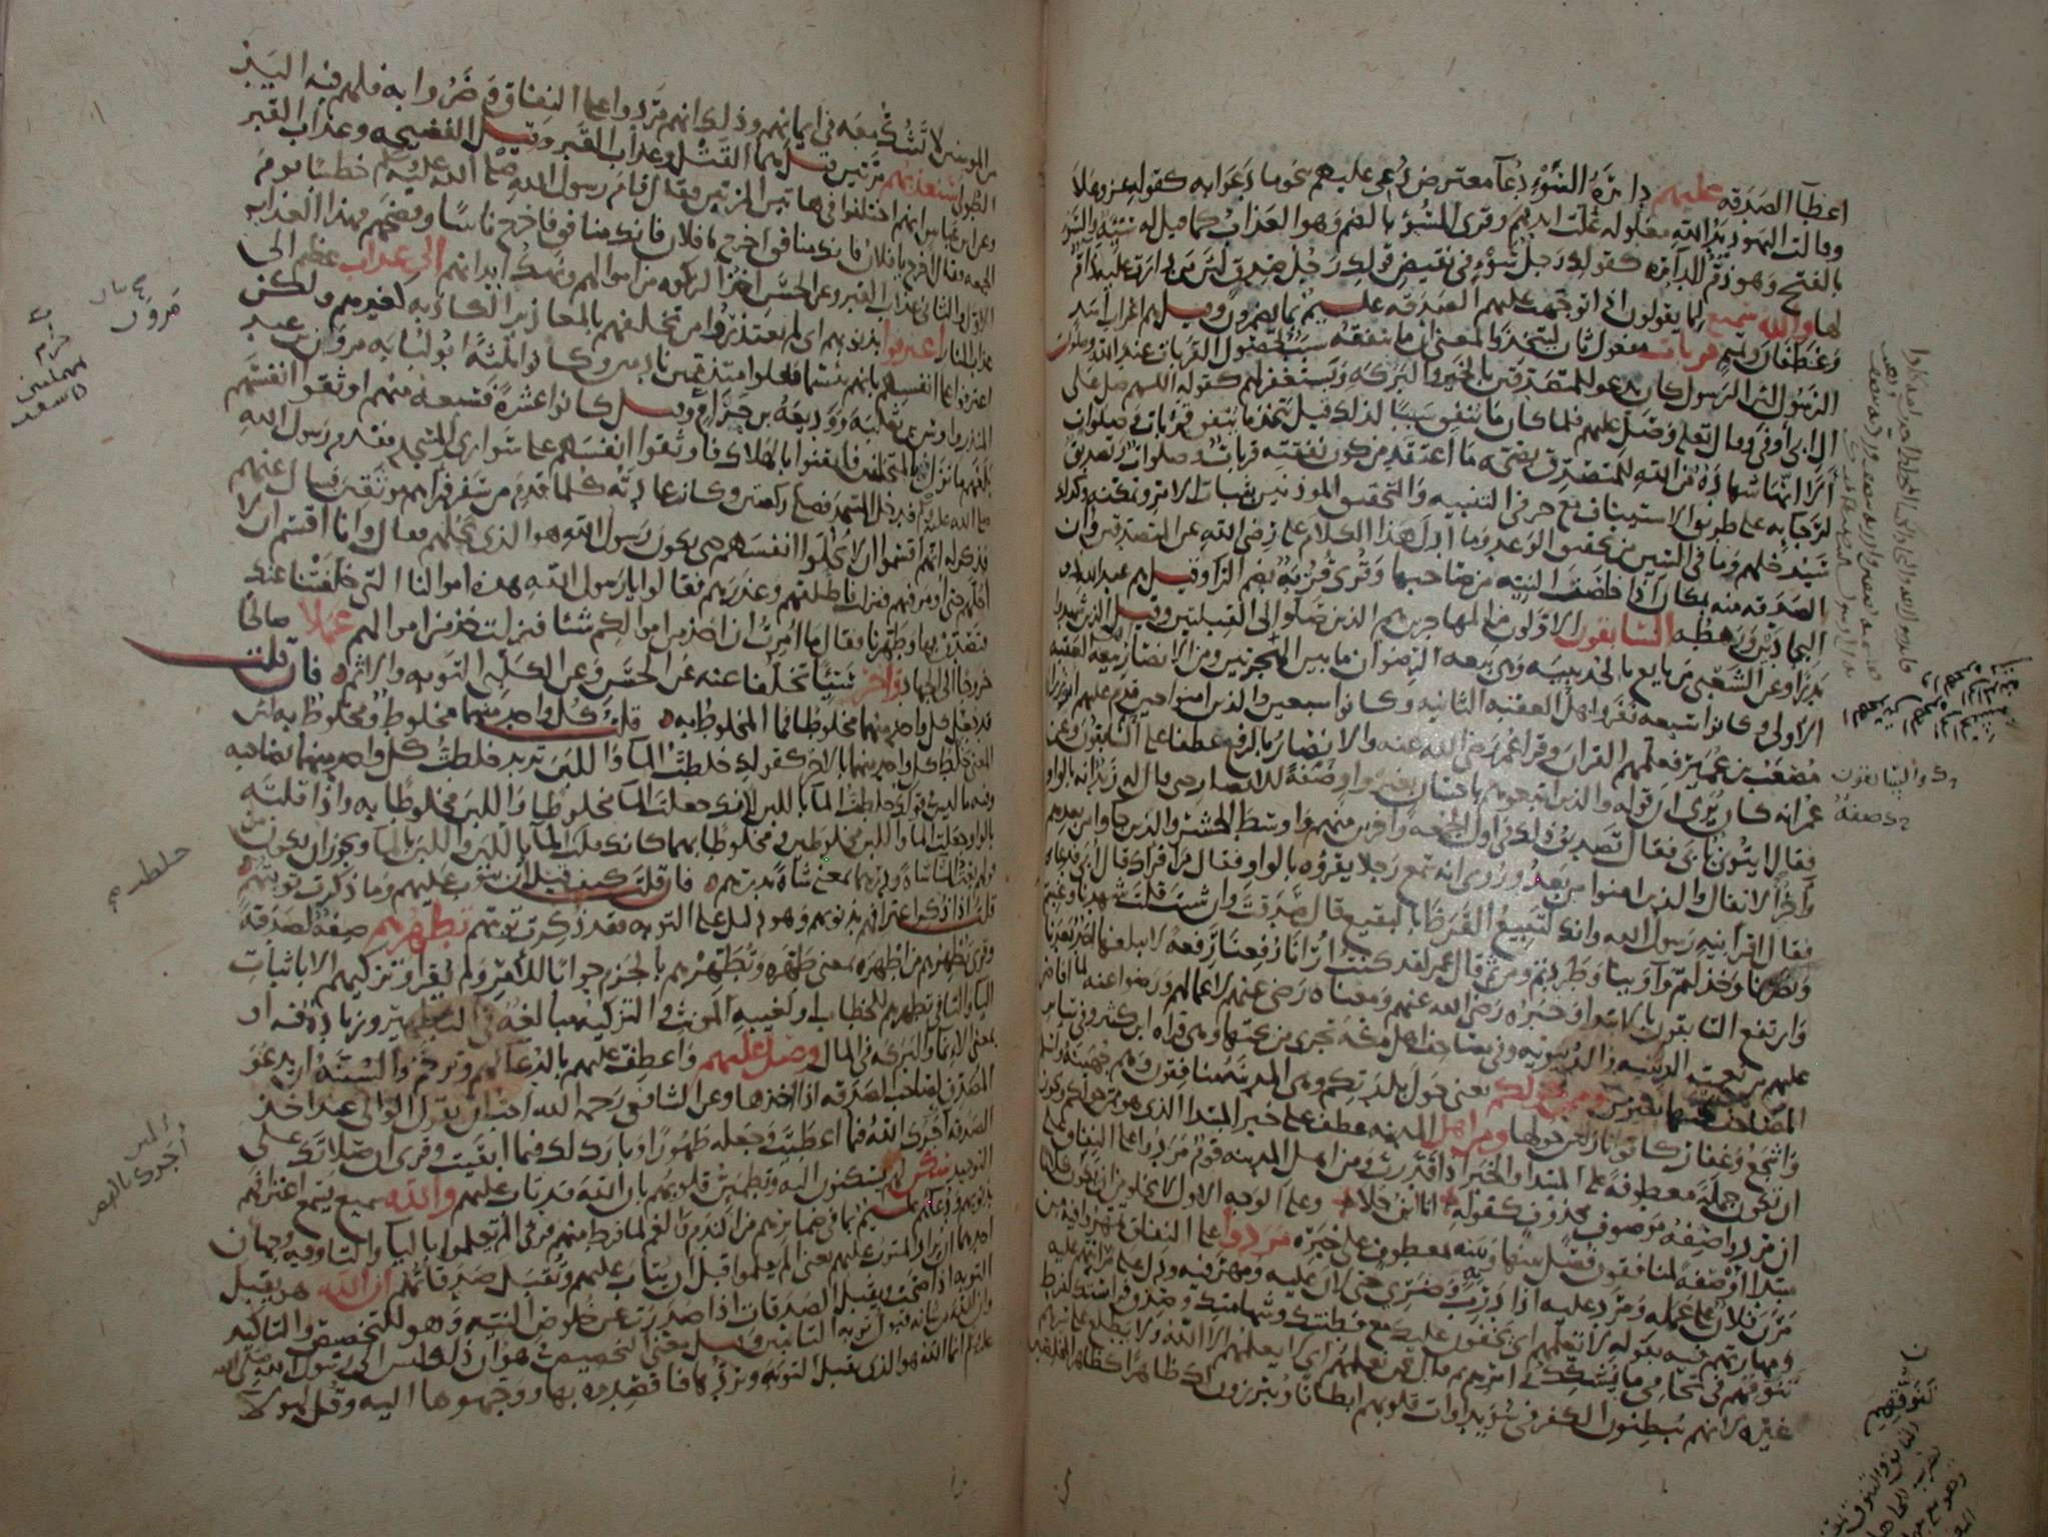 اعطآ الصدقه عليهم دائرة السوء دعآ معترض دعى عليهم بنحو ما دعوا به كقوله عز وعلا
وقالت اليهود يد الله مغلوله غلت ايديهم وقرى السوء بالضم وهو العذاب كما قيل له سيئة والسوء
بالفتح وهو ذم للدائره كقولك رجل سوء فى نقيض قولك رجل صدق لان من دارت عليه ذام
لها والله سميع لما يقولون اذا توجهت عليهم الصدقه عليم بما يضمرون وقيل هم اعراب اسد
وغطفان وتميم قربات مفعول ثان ليتخذ والمعنى ان ما ينفقه سبب لحصول القربات عند الله وصلوات
الرسول لان الرسول كان يدعو للمتصدقين بالخير والبركه ويستغفر لهم كقوله اللهم صل على
ال ابى اوفى وقال تعلى وصل عليهم فلما كان ما ينفق سببا لذلك قيل يتخذ ما ينفق قربات وصلوات
الا انها شهادة من الله للمتصدق بصحه ما اعتقد من كون نفقته قربات وصلوات وتصديق
لرجائه على طريق الاستيناف مع حرفى التنبيه والتحقيق الموذنين بثبات الامر وتمكنه وكذلك
سيدخلهم وما فى السين من تحقيق الوعد وما ادل هذا الكلام على رضى الله عن المتصدقين وان
الصدقه منه بمكان اذا خلصت النيه من صاحبها وقرى قربة بضم الرآ وقيل هم عبد الله ذو
البجادين ورهطه السابقون الاولون من المهاجرين هم الذين صلوا الى القبلتين وقيل الذين شهدوا
بدرا وعن الشعبى من بايع بالحديبيه وهى بيعه الرضوان ما بين الهجرتين ومن الانصار بيعه العقبه
الاولى وكانوا سبعه نفر واهل العقبه الثانيه وكانوا سبعين والذين امنوا حين قدم عليهم ابو زرارة
مصعب بن عمير فعلمهم القران وقرا عمر رضى الله عنه والانصار بالرفع عطفا على السابقون وعن
عمر انه كان يرى ان قوله والذين اتبعوهم باحسان بغير واو صفة للانصار حتى قال له زيد انه بالواو
فقال ايتونى بابى فقال تصديق ذلك فى اول الجمعه واخرين منهم واوسط الحشر والذين جاوا من بعدهم
وآخر الانفال والذين امنوا من بعد وروى انه سمع رجلا يقرؤه بالواو فقال من اقراك قال ابى فدعاه
فقال اقرانيه رسول الله وانك لتبيع القرظ بالبقيع قال صدقت وان شئت قلت شهدنا وغبتم
ونصرنا وخذلتم وآوينا وطردتم ومن ثم قال عمر لقد كنت ارانا رفعنا رفعه لا يبلغها احد بعدنا
وارتفع السابقون بالابتدا وخبره رضى الله عنهم ومعناه رضى عنهم لاعمالهم ورضوا عنه لما افاض
عليهم من نعمته الدينيه والدنيويه وفى مصاحف اهل مكه تجرى من تحتها وهى قراه ابن كثير وفى سائر
المصاحف تحتها بغير من وممن حولكم يعنى حول بلدتكم وهى المدينه منافقون وهم جهينة واسلم
واشجع وغفار كانوا نازلين حولها ومن اهل المدينه عطف على خبر المبتدا الذى هو ممن حولكم ويجوز
ان يكون جملة معطوفة على المبتدا والخبر اذا قدرت ومن اهل المدينه قوم مردوا على النفاق على
ان مردوا صفه موصوف محذوف كقوله انا ابن جلا وعلى الوجه الاول لا يخلو من ان يكون كلاما
مبتدا او صفة لمنافقون فصل بينها وبينه بمعطوف على خبره مردوا على النفاق تمهروا فيه من
مرن فلان على عمله ومرد عليه اذا درب وضرى حتى لان عليه ومهر فيه ودل على مرانتهم عليه
ومهارتهم فيه بقوله لا تعلمهم اى يخفون عليك مع فطنتك وشهامتك وصدق فراستك لفرط
تنوقهم فى تحامى ما يشكك فى امرهم ثم قال نحن نعلمهم اى لا يعلمهم الا الله ولا يطلع على سرهم
غيره لانهم يبطنون الكفر فى سويداوات قلوبهم ابطانا ويبرزون لك ظاهرا كظاهر المخلصين
والسابقون
صفة
من المومنين لا تشك معه فى ايمانهم وذلك انهم مردوا على النفاق وضروا به فلهم فيه اليد
الطولى سنعذبهم مرتين قيل هما القتل وعذاب القبر وقيل الفضيحه وعذاب القبر
وعن ابن عباس انهم اختلفوا فى هاتين المرتين فقال قام رسول الله صلى الله عليه وسلم خطيبا يوم
الجمعه فقال اخرج يا فلان فانك منافق اخرج يا فلان فانك منافق فاخرج ناسا وفضحهم فهذا العذاب
الاول والثانى عذاب القبر وعن الحسن اخذ الزكوه من اموالهم ونهك ابدانهم الى عذاب عظيم الى
عذاب النار اعترفوا بذنوبهم اى لم يعتذروا من تخلفهم بالمعاذير الكاذبه كغيرهم ولكن
اعترفوا على انفسهم بانهم بئسما فعلوا متذممين نادمين وكانوا ثلثة ابو لبابه مروان بن عبد
المنذر واوس بن ثعلبه ووديعة بن حزام وقيل كانوا عشرة فسبعه منهم اوثقوا انفسهم
بلغهم ما نزل فى المتخلفين فايقنوا بالهلاك فاوثقوا انفسهم على سوارى المسجد فقدم رسول الله
صلى الله عليه وسلم فدخل المسجد فصلى ركعتين وكان عادته كلما قدم من سفر فراهم موثقين فسال عنهم
فذكر له انهم اقسموا ان لا يحلوا انفسهم حتى يكون رسول الله هو الذى يحلهم فقال وانا اقسم ان لا
احلهم حتى اومر فيهم فنزلت فاطلقهم وعذرهم فقالوا يا رسول الله هذه اموالنا التى خلفتنا عنك
فتصدق بها وطهرنا فقال ما امرت ان اخذ من اموالكم شئا فنزلت خذ من اموالهم عملا صالحا
خروجا الى الجهاد واخر سيئا تخلفا عنه عن الحسن وعن الكلبى التوبه والاثم فان قلت
قد جعل كل واحد منهما مخلوطا فما المخلوط به قلت كل واحد منهما مخلوط ومخلوط به لان
المعنى خلط كل واحد منهما بالاخر كقولك خلطت المآ واللبن تريد خلطت كل واحد منهما بصاحبه
وفيه ما ليس فى قولك خلطت المآ باللبن لانك جعلت المآ مخلوطا واللبن مخلوطا به واذا قلته
بالواو جعلت المآ واللبن مخلوطين ومخلوطا بهما كانك قلت المآ باللبن واللبن بالمآ ويجوز ان يكون من
قولهم بعت الشآ شاة ودرهما بمعنى شاة بدرهم فان قلت كيف قيل ان يتوب عليهم وما ذكرت توبتهم
قلت اذا ذكر اعترافهم بذنوبهم وهو دليل على التوبه فقد ذكرت توبتهم تطهرهم صفة لصدقة
وقرى تطهرهم من اطهره بمعنى طهره وتطهرهم بالجزم جوابا للامر ولم يقرا وتزكيهم الا باثبات
اليآ والتا فى تطهرهم للخطاب او لغيبه المونث والتزكيه مبالغه فى التطهير وزياده فيه او
بمعنى الانمآ والبركه فى المال وصل عليهم واعطف عليهم بالدعآ لهم وترحم والسنه ان يدعو
المصدق لصاحب الصدقه اذا اخذها وعن الشافعى رحمه الله احب ان يقول الوالى عند اخذ
الصدقه اجرك الله فيما اعطيت وجعله طهورا وبارك لك فيما ابقيت وقرى ان صلاتك على
التوحيد سكن لهم يسكنون اليه وتطمئن قلوبهم بان الله قد تاب عليهم والله سميع يسمع اعترافهم
بذنوبهم ودعآهم عليم بما فى ضمايرهم من الندم والغم لما فرط منهم قرى الم يعلموا باليآ والتآ وفيه وجهان
احدهما ان يراد المتوب عليهم يعنى الم يعلموا قبل ان يتاب عليهم وتقبل صدقاتهم ان الله هو يقبل
التوبه اذا صحت ويقبل الصدقات اذا صدرت عن خلوص النيه وهو للتخصيص والتاكيد
وان الله من شانه قبول توبه التائبين وقيل معنى التخصيص فى هو ان ذلك ليس الى رسول الله صلى الله
عليه وسلم انما الله هو الذى يقبل التوبه ويردها فاقصدوه بها ووجهوها اليه وقل لهولآ
مروان
حزام